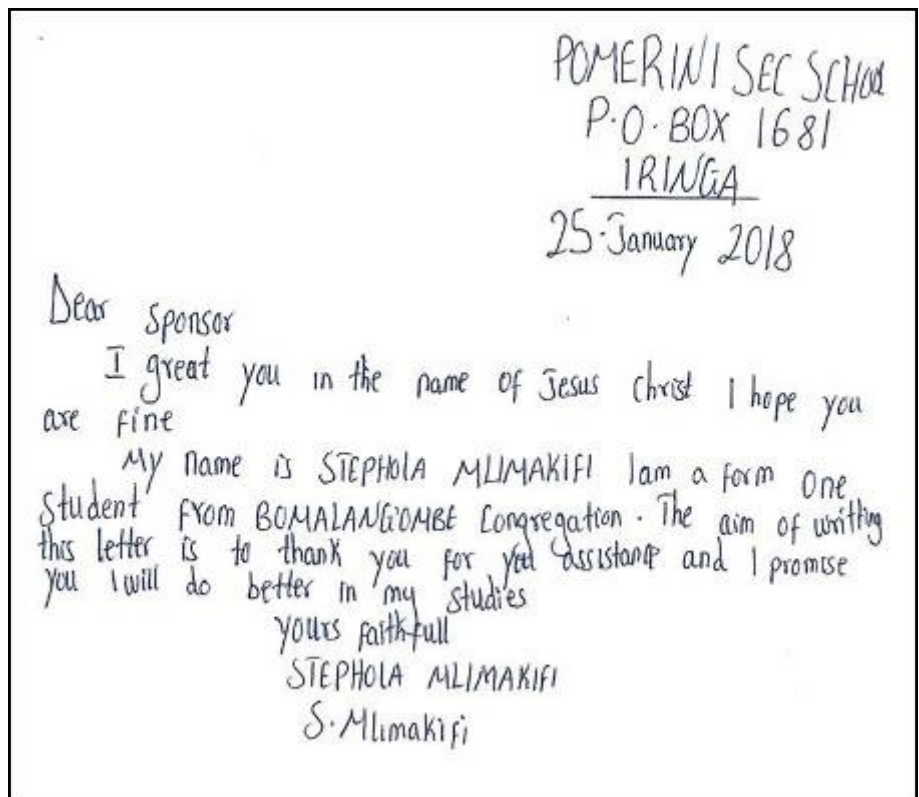 POMERINI SEC SCHOOL
P.O. BOX 1681
IRINGA
25. January 2018
Dear Sponsor
I great you in the name of Jesus Christ I hope you
are fine
My name is STEPHOLA MLIMAKIFI Iam a form One
Student from BOMALANG'OMBE Congregation. The aim of writting
this letter is to thank you for you assistance and I promise
you I will do better in my studies
yours faithfull
STEPHOLA MLIMAKIFI
S. Mlimakifi